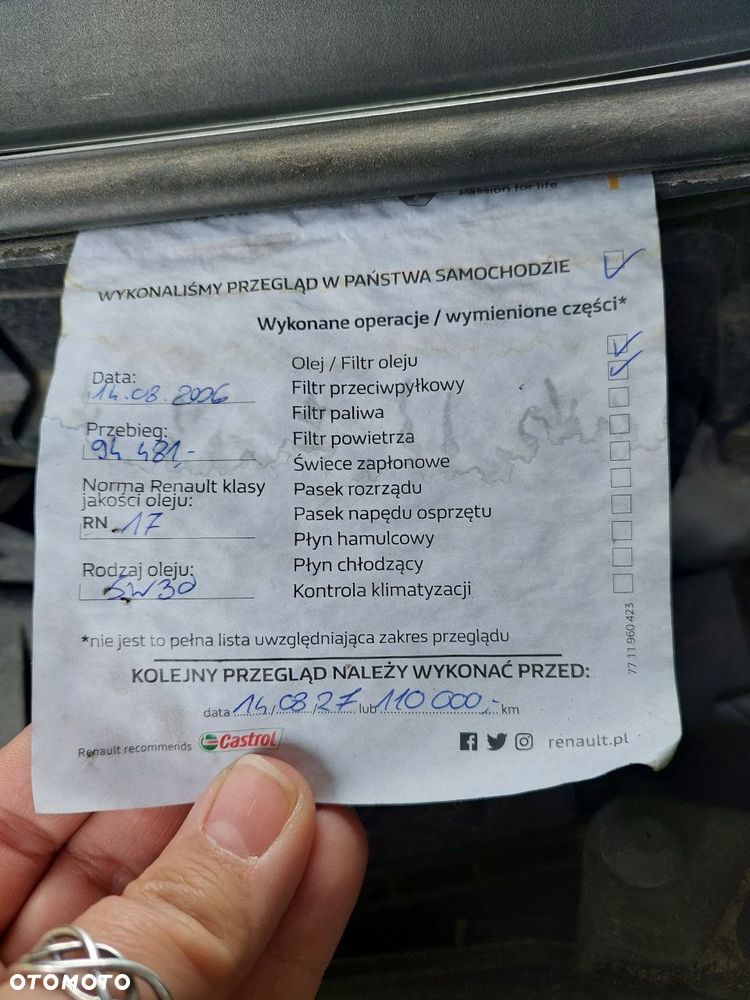 Passion for life
WYKONALIŚMY PRZEGLĄD W PAŃSTWA SAMOCHODZIE
Wykonane operacje / wymienione części*
Data:
14.08.2026
Przebieg:
94 481,-
Norma Renault klasy
jakości oleju:
RN 17
Rodzaj oleju:
5W30
Olej / Filtr oleju
Filtr przeciwpyłkowy
Filtr paliwa
Filtr powietrza
Świece zapłonowe
Pasek rozrządu
Pasek napędu osprzętu
Płyn hamulcowy
Płyn chłodzący
Kontrola klimatyzacji
77 11 960 423
*nie jest to pełna lista uwzględniająca zakres przeglądu
KOLEJNY PRZEGLĄD NALEŻY WYKONAĆ PRZED:
data 14/08/27 lub 110 000,- km
Renault recommends Castrol
renault.pl
OTOMOTO